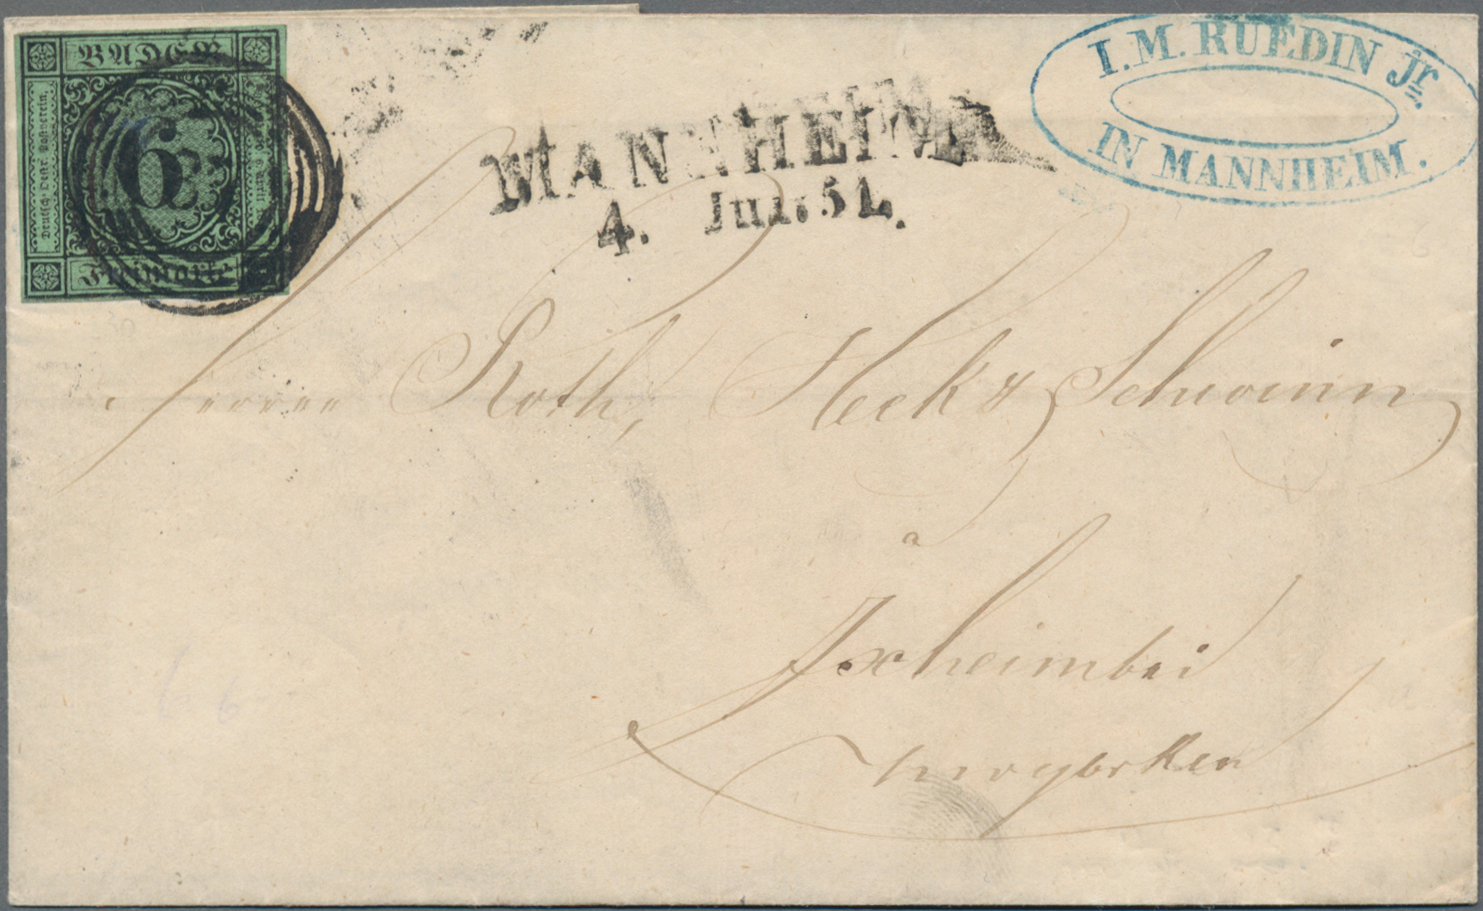 BADEN
Deutsch-Östr. Postverein.
6
Freimarke
MANNHEIM
4. Jul. 51.
I. M. RUEDIN Jr.
IN MANNHEIM.
Herren Roth, Heck & Schwinn
a
Ixheim bei
Zweybrken